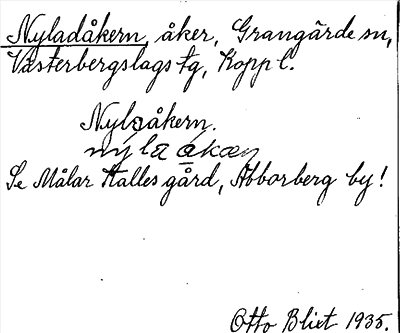 Nyladåkern, åker, Grangärde sn,
Västerbergslags tg, Kopp l.
Nylaåkern.
Se Målar Kalles gård, Abborberg by!
Otto Blixt 1935.